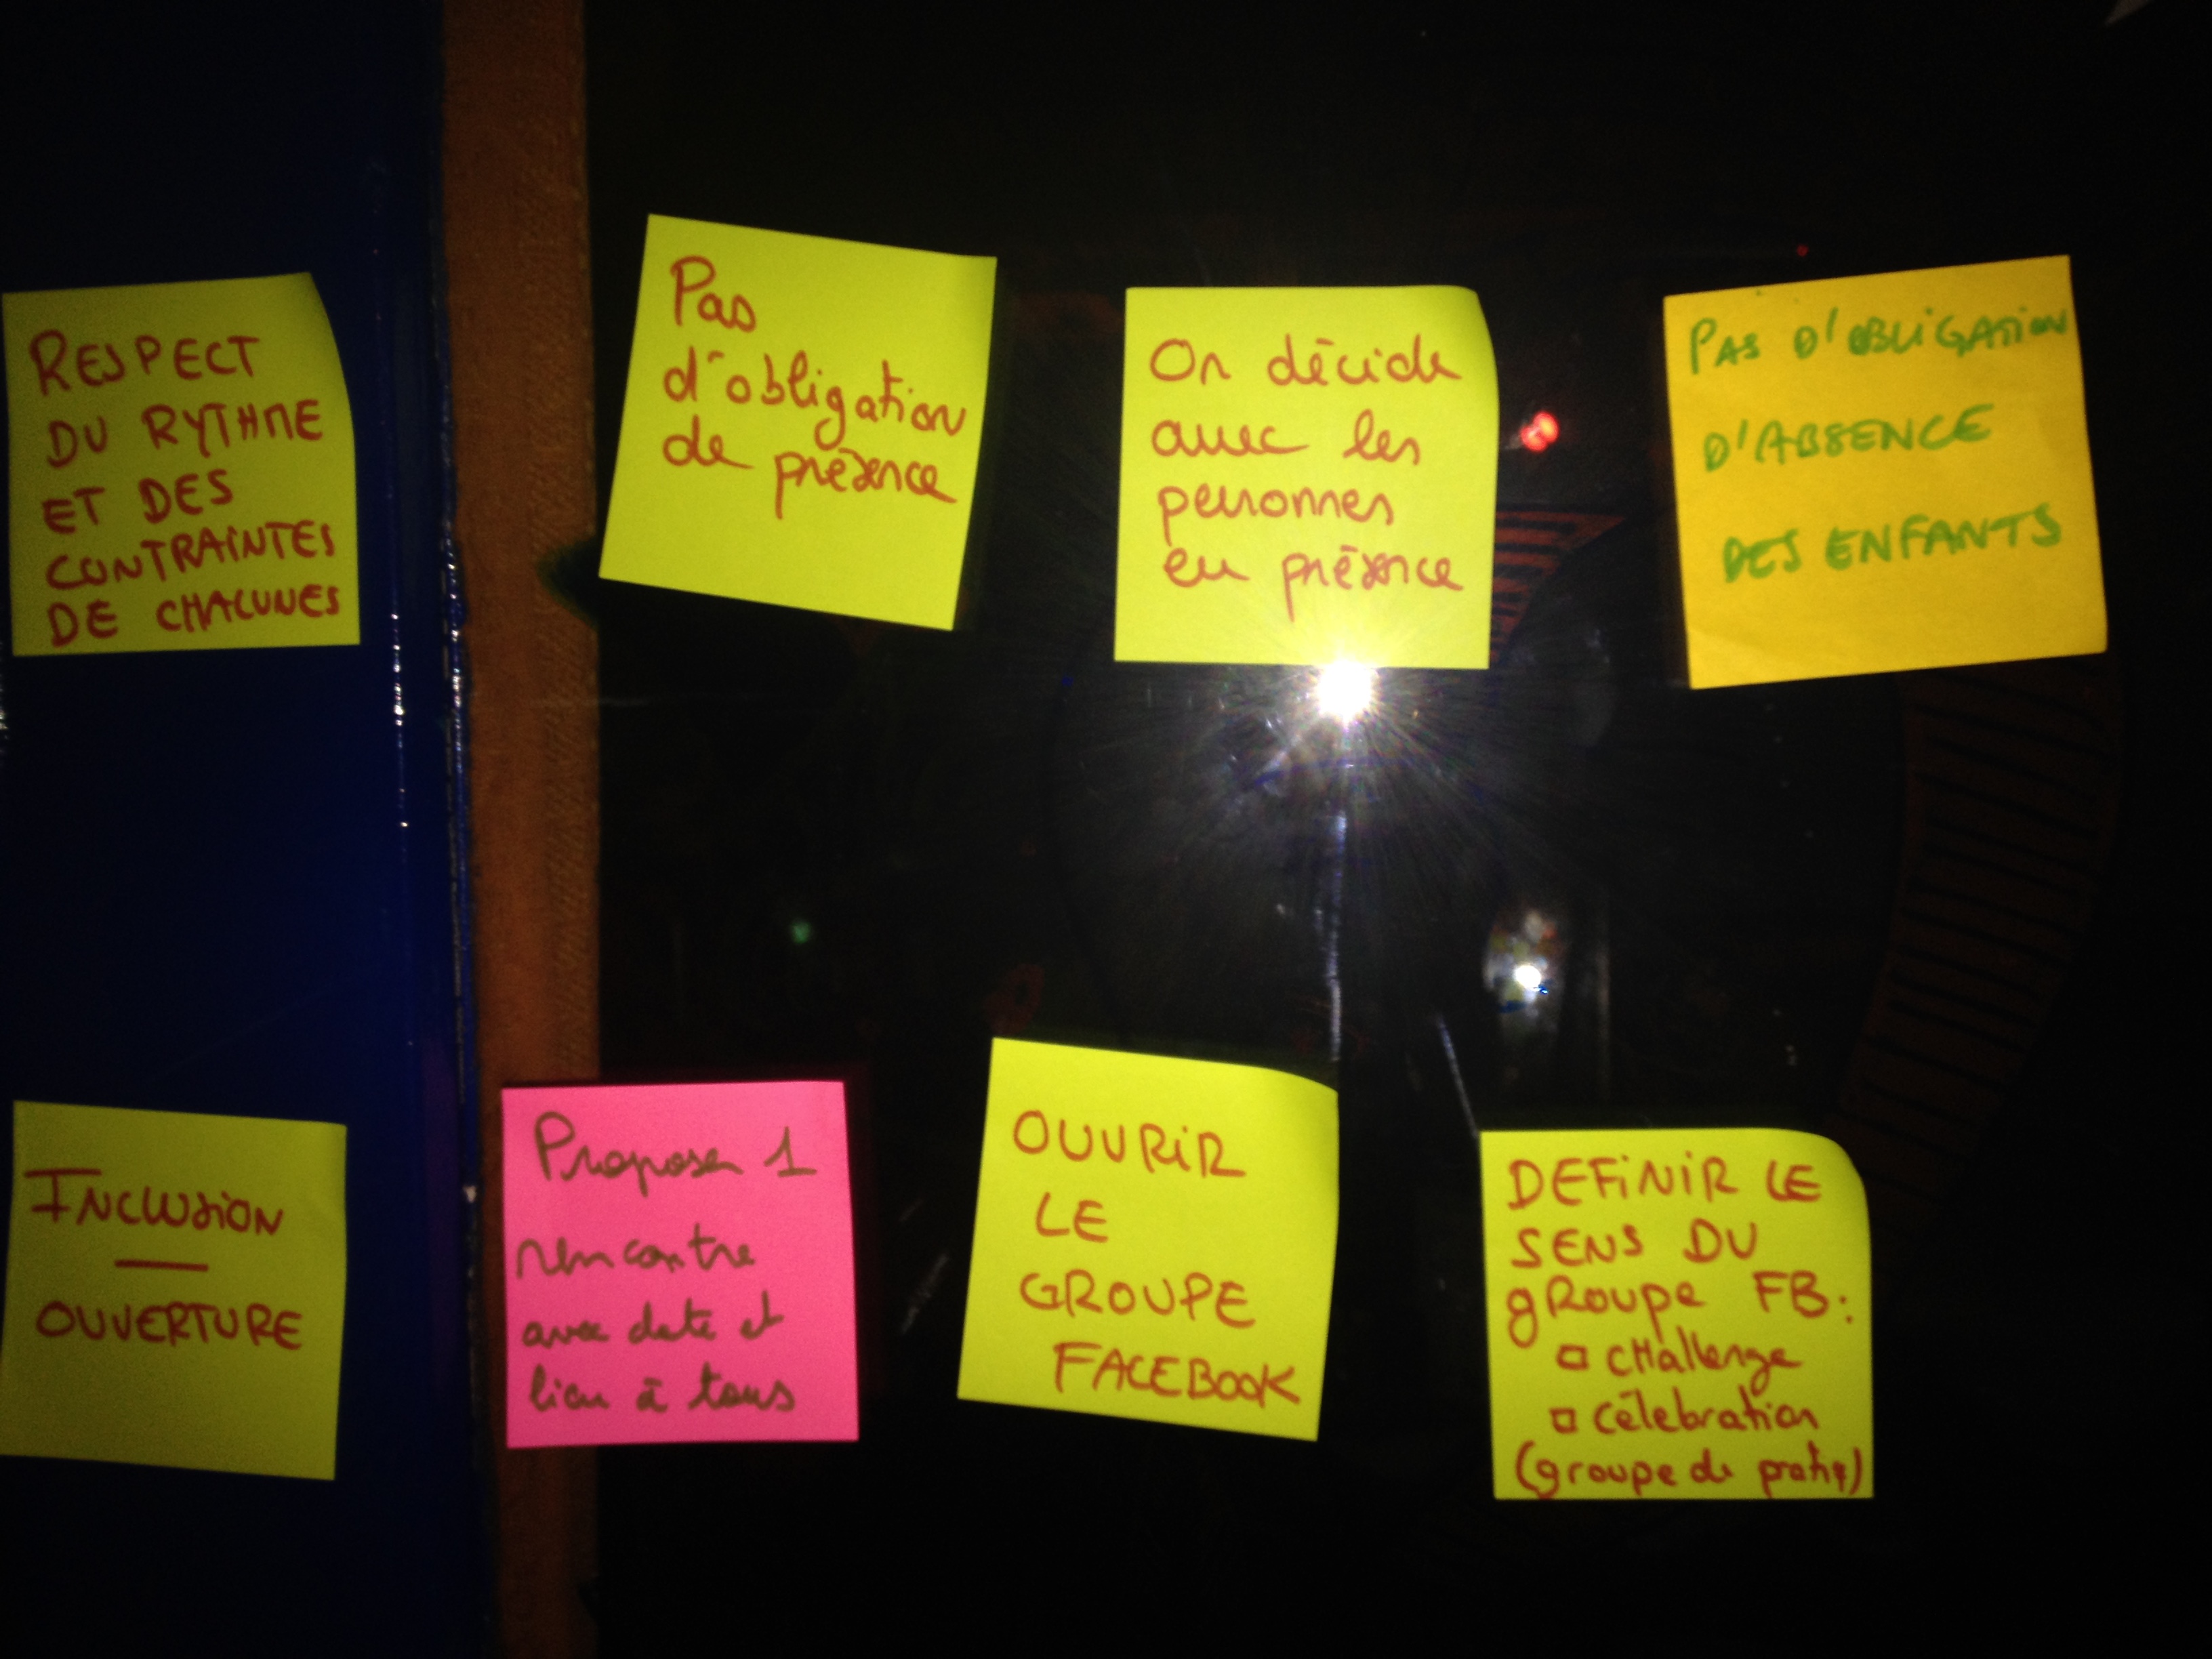 RESPECT
DU RYTHME
ET DES
CONTRAINTES
DE CHACUNES
Pas
d'obligation
de présence
On décide
avec les
personnes
en présence
PAS D'OBLIGATION
D'ABSENCE
DES ENFANTS
INCLUSION
—
OUVERTURE
Proposer 1
rencontre
avec date et
lieu à tous
OUVRIR
LE
GROUPE
FACEBOOK
DEFINIR LE
SENS DU
gRoupe FB:
□ cHallenge
□ célébration
(groupe de pratiq)